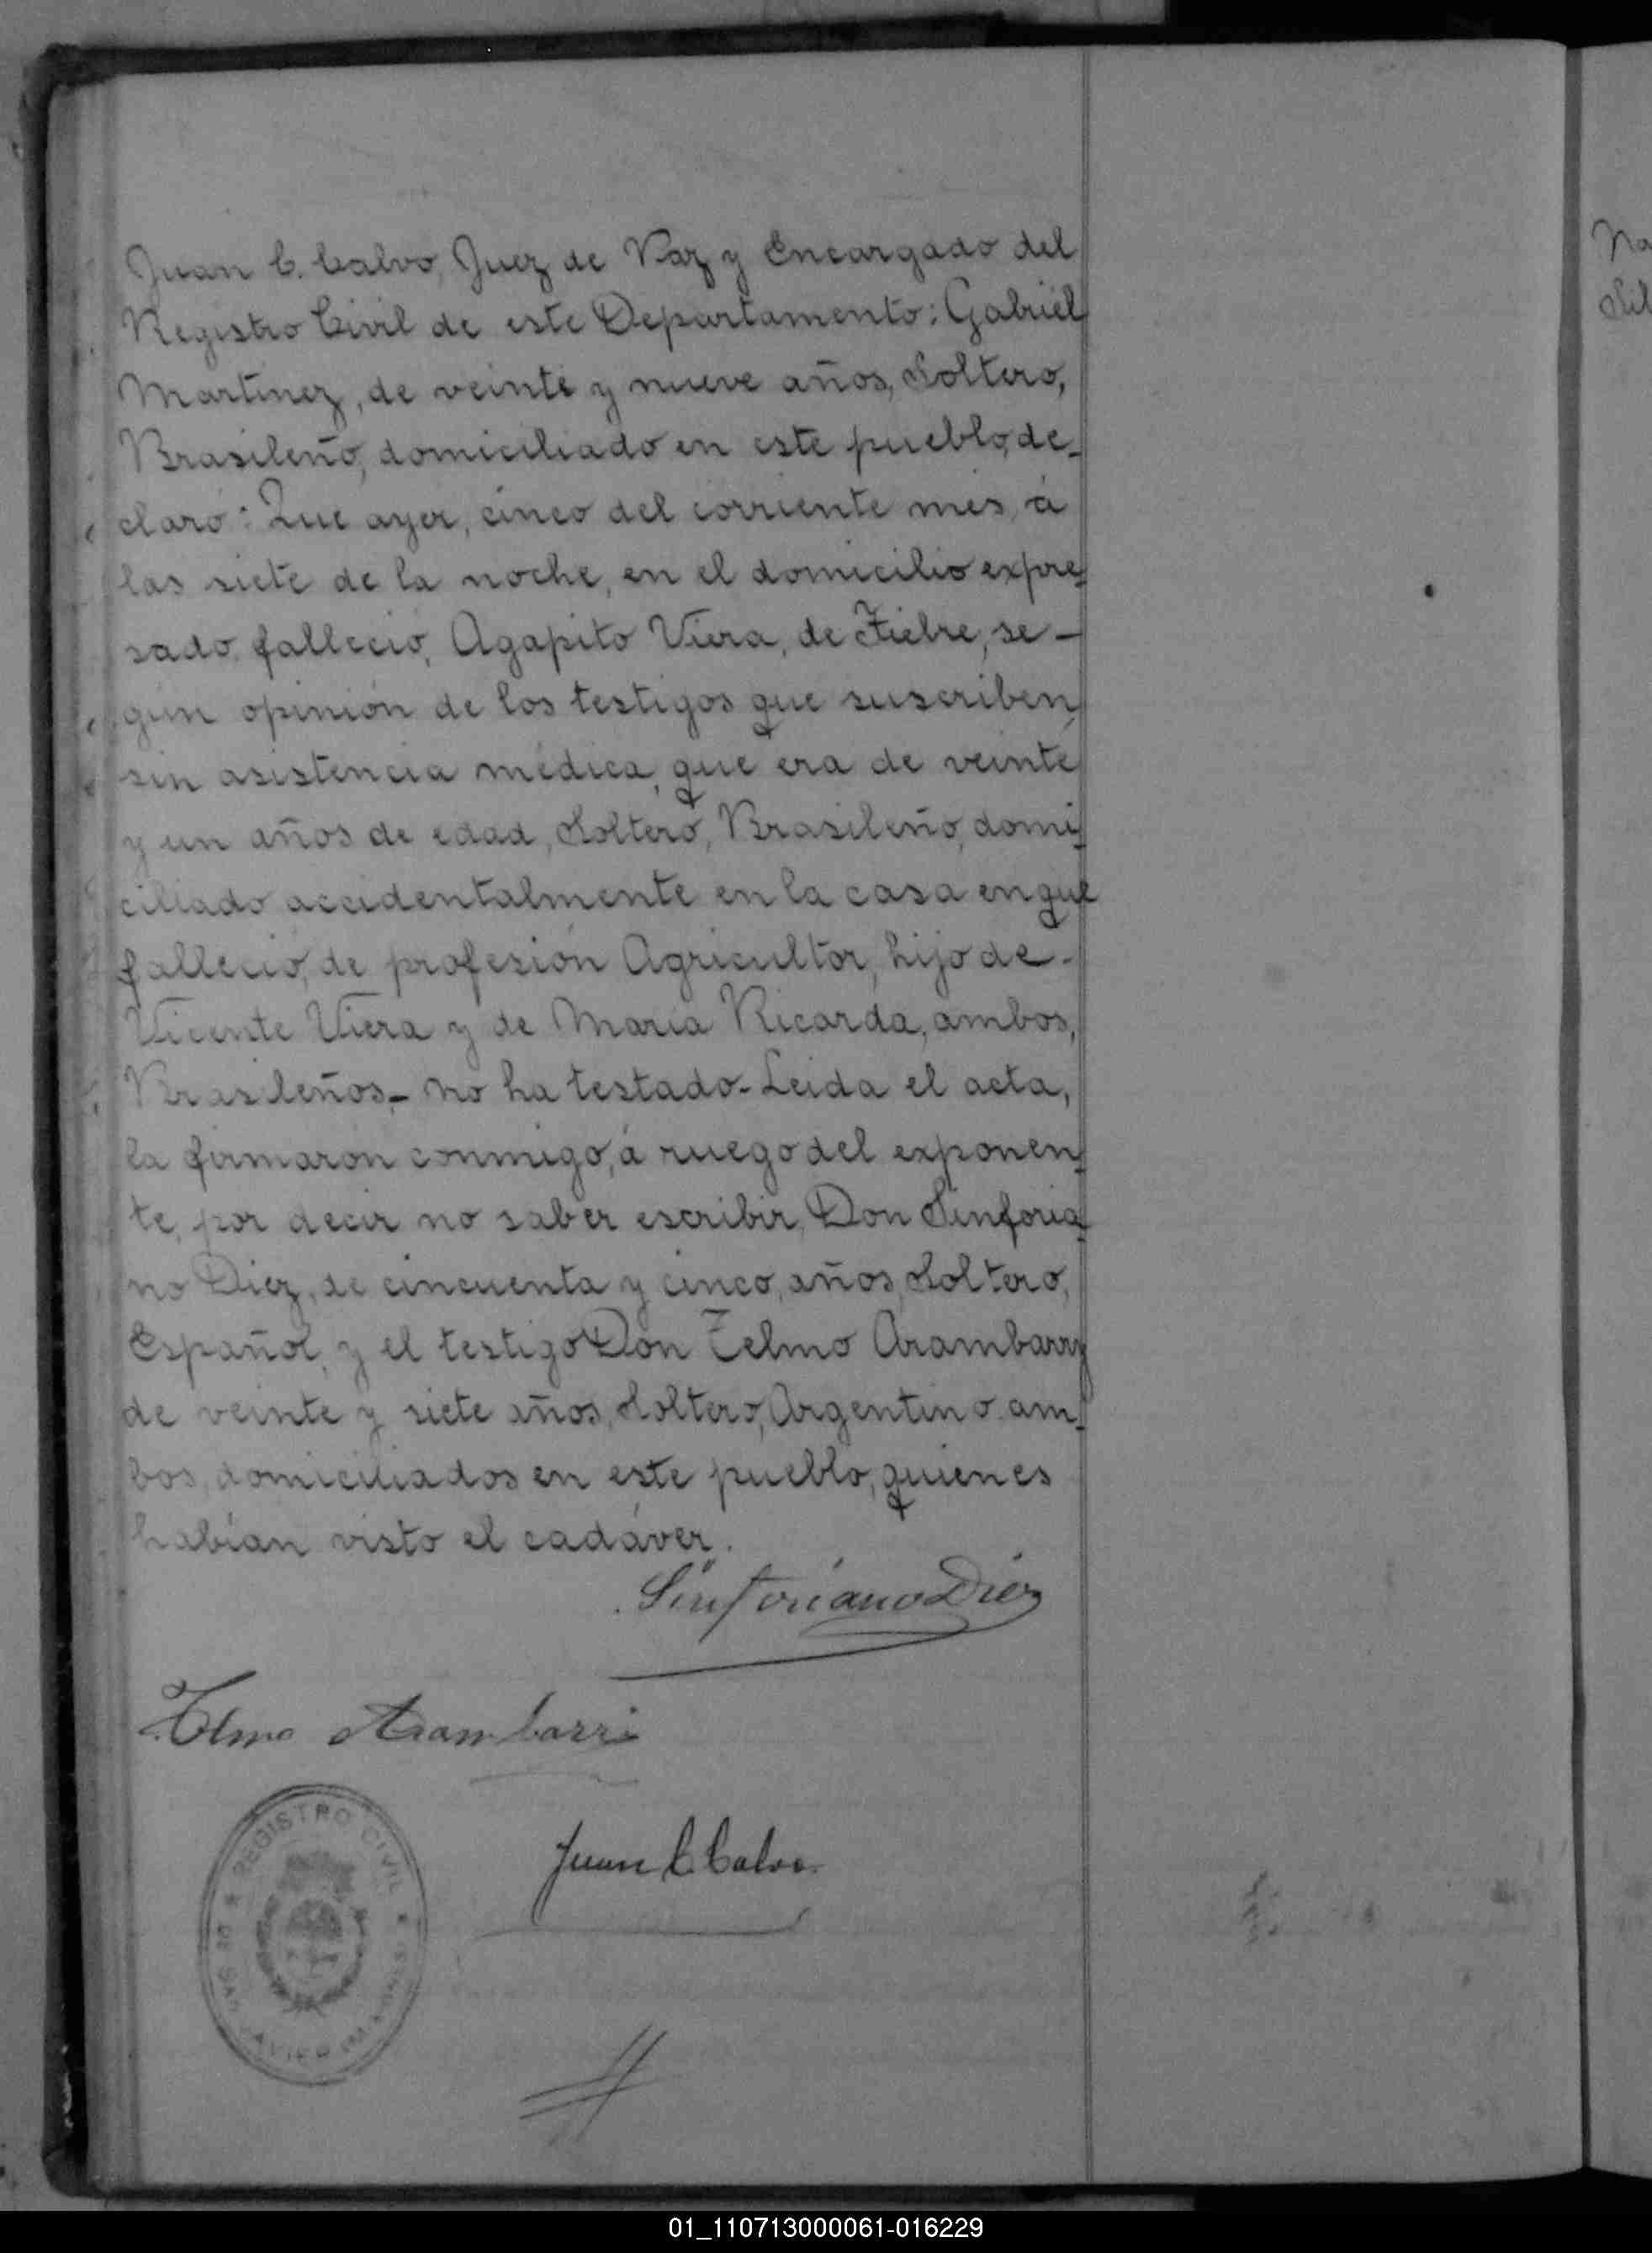 Juan C. Calvo, Juez de Paz y Encargado del
Registro Civil de este Departamento: Gabriel
Martinez, de veinte y nueve años, Soltero,
Brasileño, domiciliado en este pueblo, de-
claró: Que ayer, cinco del corriente mes, á
las siete de la noche, en el domicilio expre-
sado, falleció, Agapito Viera, de Fiebre, se-
gún opinión de los testigos que suscriben,
sin asistencia médica, que era de veinte
y un años de edad, Soltero, Brasileño, domi-
ciliado accidentalmente en la casa en que
falleció, de profesión Agricultor, hijo de-
Vicente Viera y de María Ricarda, ambos,
Brasileños.- no ha testado- Leida el acta,
la firmaron conmigo, á ruego del exponen-
te, por decir no saber escribir, Don Sinforia-
no Diez, de cincuenta y cinco, años, Soltero,
Español, y el testigo Don Telmo Arambarry
de veinte y siete años, Soltero, Argentino am-
bos, domiciliados en este pueblo, quienes
habían visto el cadáver.
Sinforiano Diez
Telmo Arambarri
Juan C Calvo
REGISTRO CIVIL
DE SAN JAVIER MISIONES
Na
Sil
01_110713000061-016229